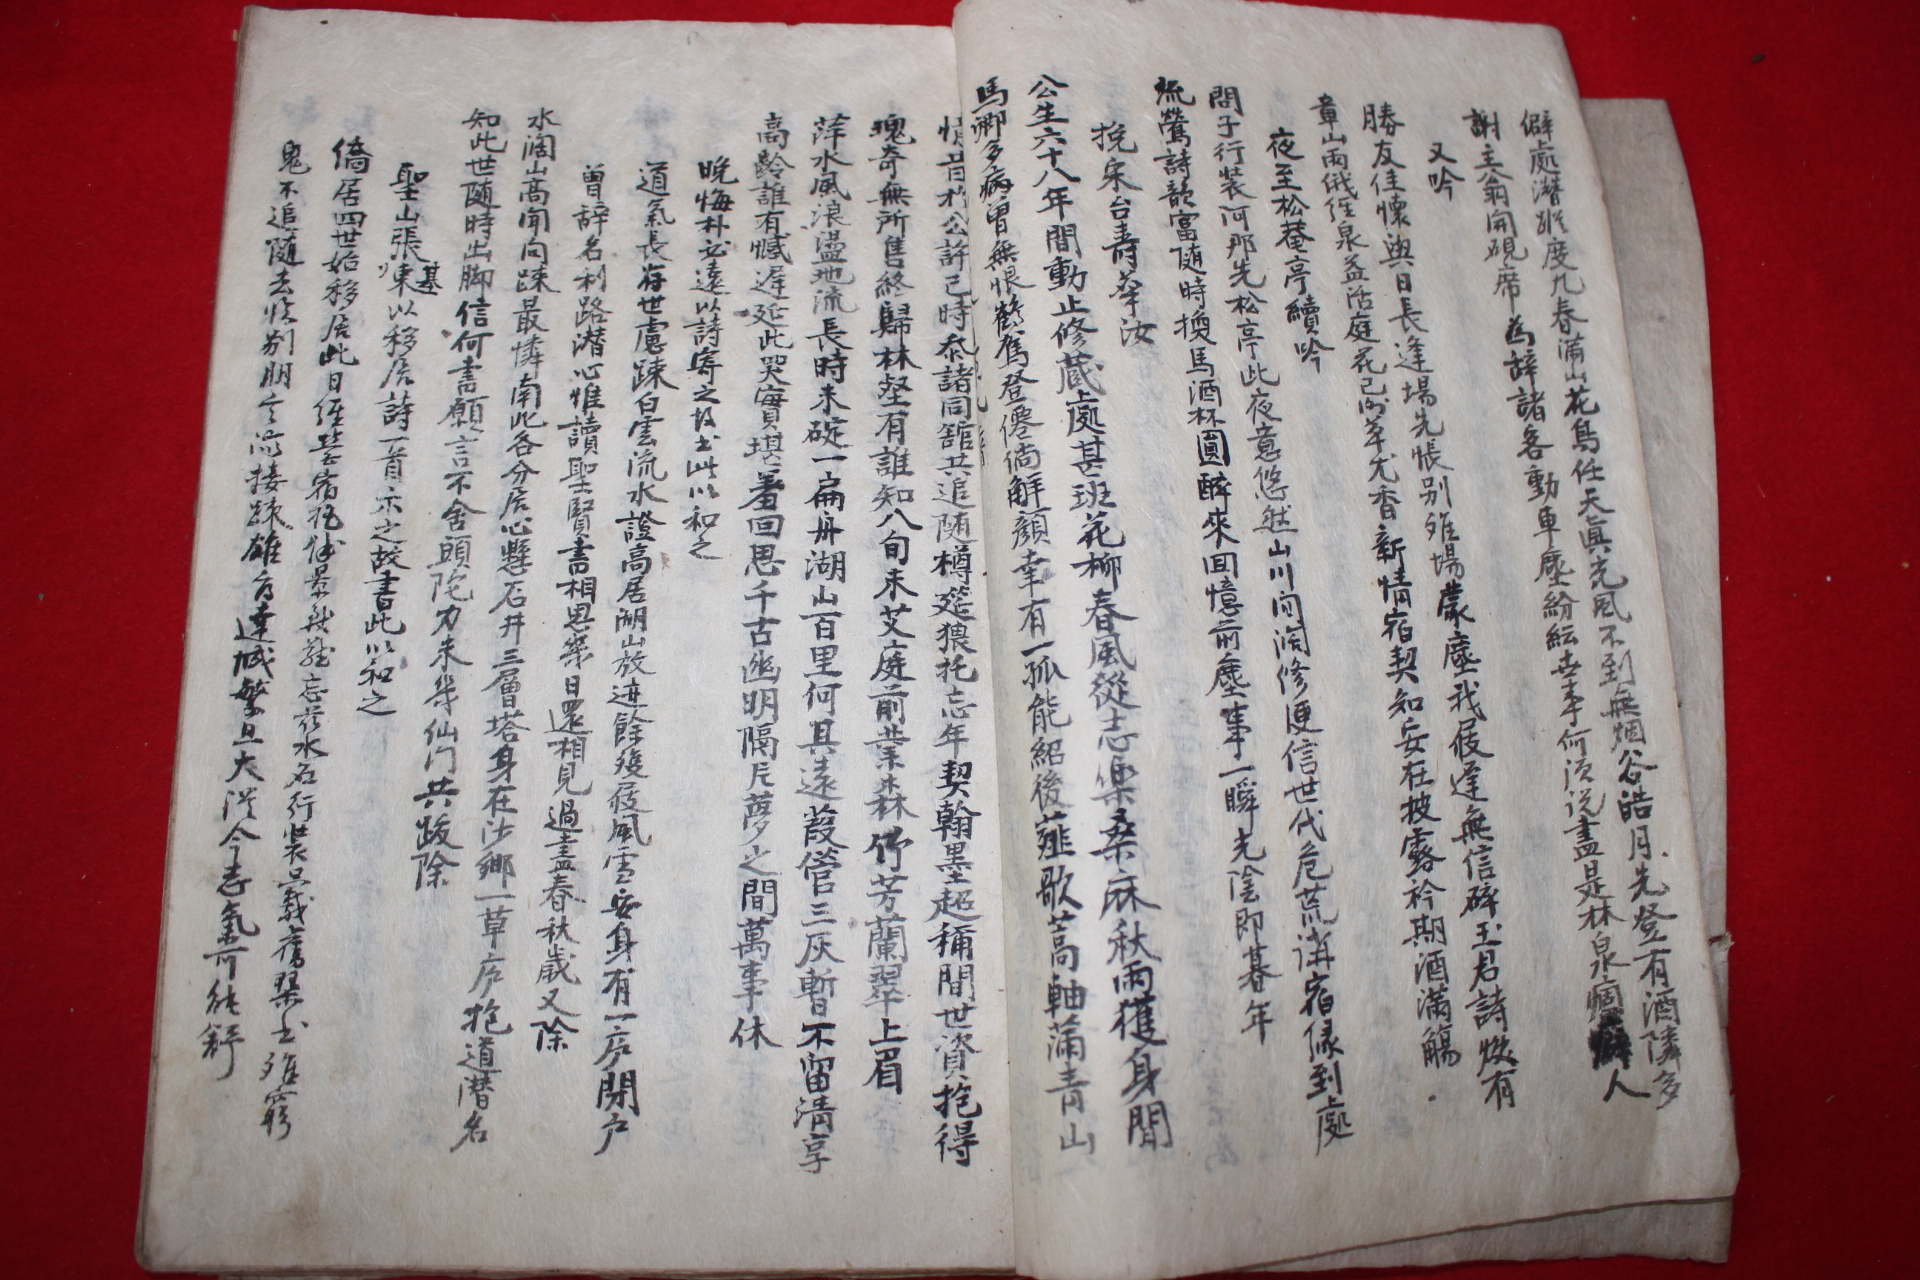 僻處潛蹤度九春滿山花鳥任天眞光風不到無烟谷皓月先登有酒隣多
謝主翁開硯席為辭諸客動車塵紛紜世事何須說盡是林泉痼癖人
又吟
勝友佳懷與日長逢場先悵別離場蒙塵我屐逢無信碎玉君詩燦有
章山雨俄經泉益活庭花已謝草尤香新情宿契知安在披露衿期酒滿觴
夜至松菴亭續吟
問子行裝何那先松亭此夜意悠然山川間闊修便信世代危荒講宿緣到處
流鶯詩韻富隨時換馬酒杯圓醉來回憶前塵事一瞬光陰即暮年
挽宋台壽華汝
公生六十八年間動止修藏處甚班花柳春風從志樂桑麻秋雨獲身閒
馬卿多病曾無恨鶴駕登僊倘解顏幸有一孤能紹後薤歌蒿軸滿青山
情昔於公許己時泰諸同舘共追隨樽筵猥托忘年契翰墨超稱間世資抱得
瑰奇無所售終歸林壑有誰知八旬未艾庭前業森竹芳蘭翠上眉
萍水風浪盪地流長時未碇一扁舟湖山百里何其遠葭管三灰暫不留淸享
高齡誰有憾遲延此哭海賈堪羞回思千古幽明隔片夢之間萬事休
晩悔朴 遠以詩寄之故書此以和之
道氣長存世慮踈白雲流水證高居湖山放迹餘殘屐風雪安身有一庐閉戶
曾辭名利路潛心惟讀聖賢書相思幾日還相見過盡春秋歲又除
水闊山高聞問踈最憐南北各分居心懸石井三層塔身在沙鄉一草庐抱道潛名
知此世隨時出脚信何書願言不舍頭陀力未幾仙门共跋除
聖山張東基以移居詩一首示之故書此以和之
僑居四世始移居此日經營宿抱攄景我難忘茲水石行裝只載舊琴書雖窮
鬼不追隨去 別朋 接踈雖 達城繁且大從今志氣可能舒